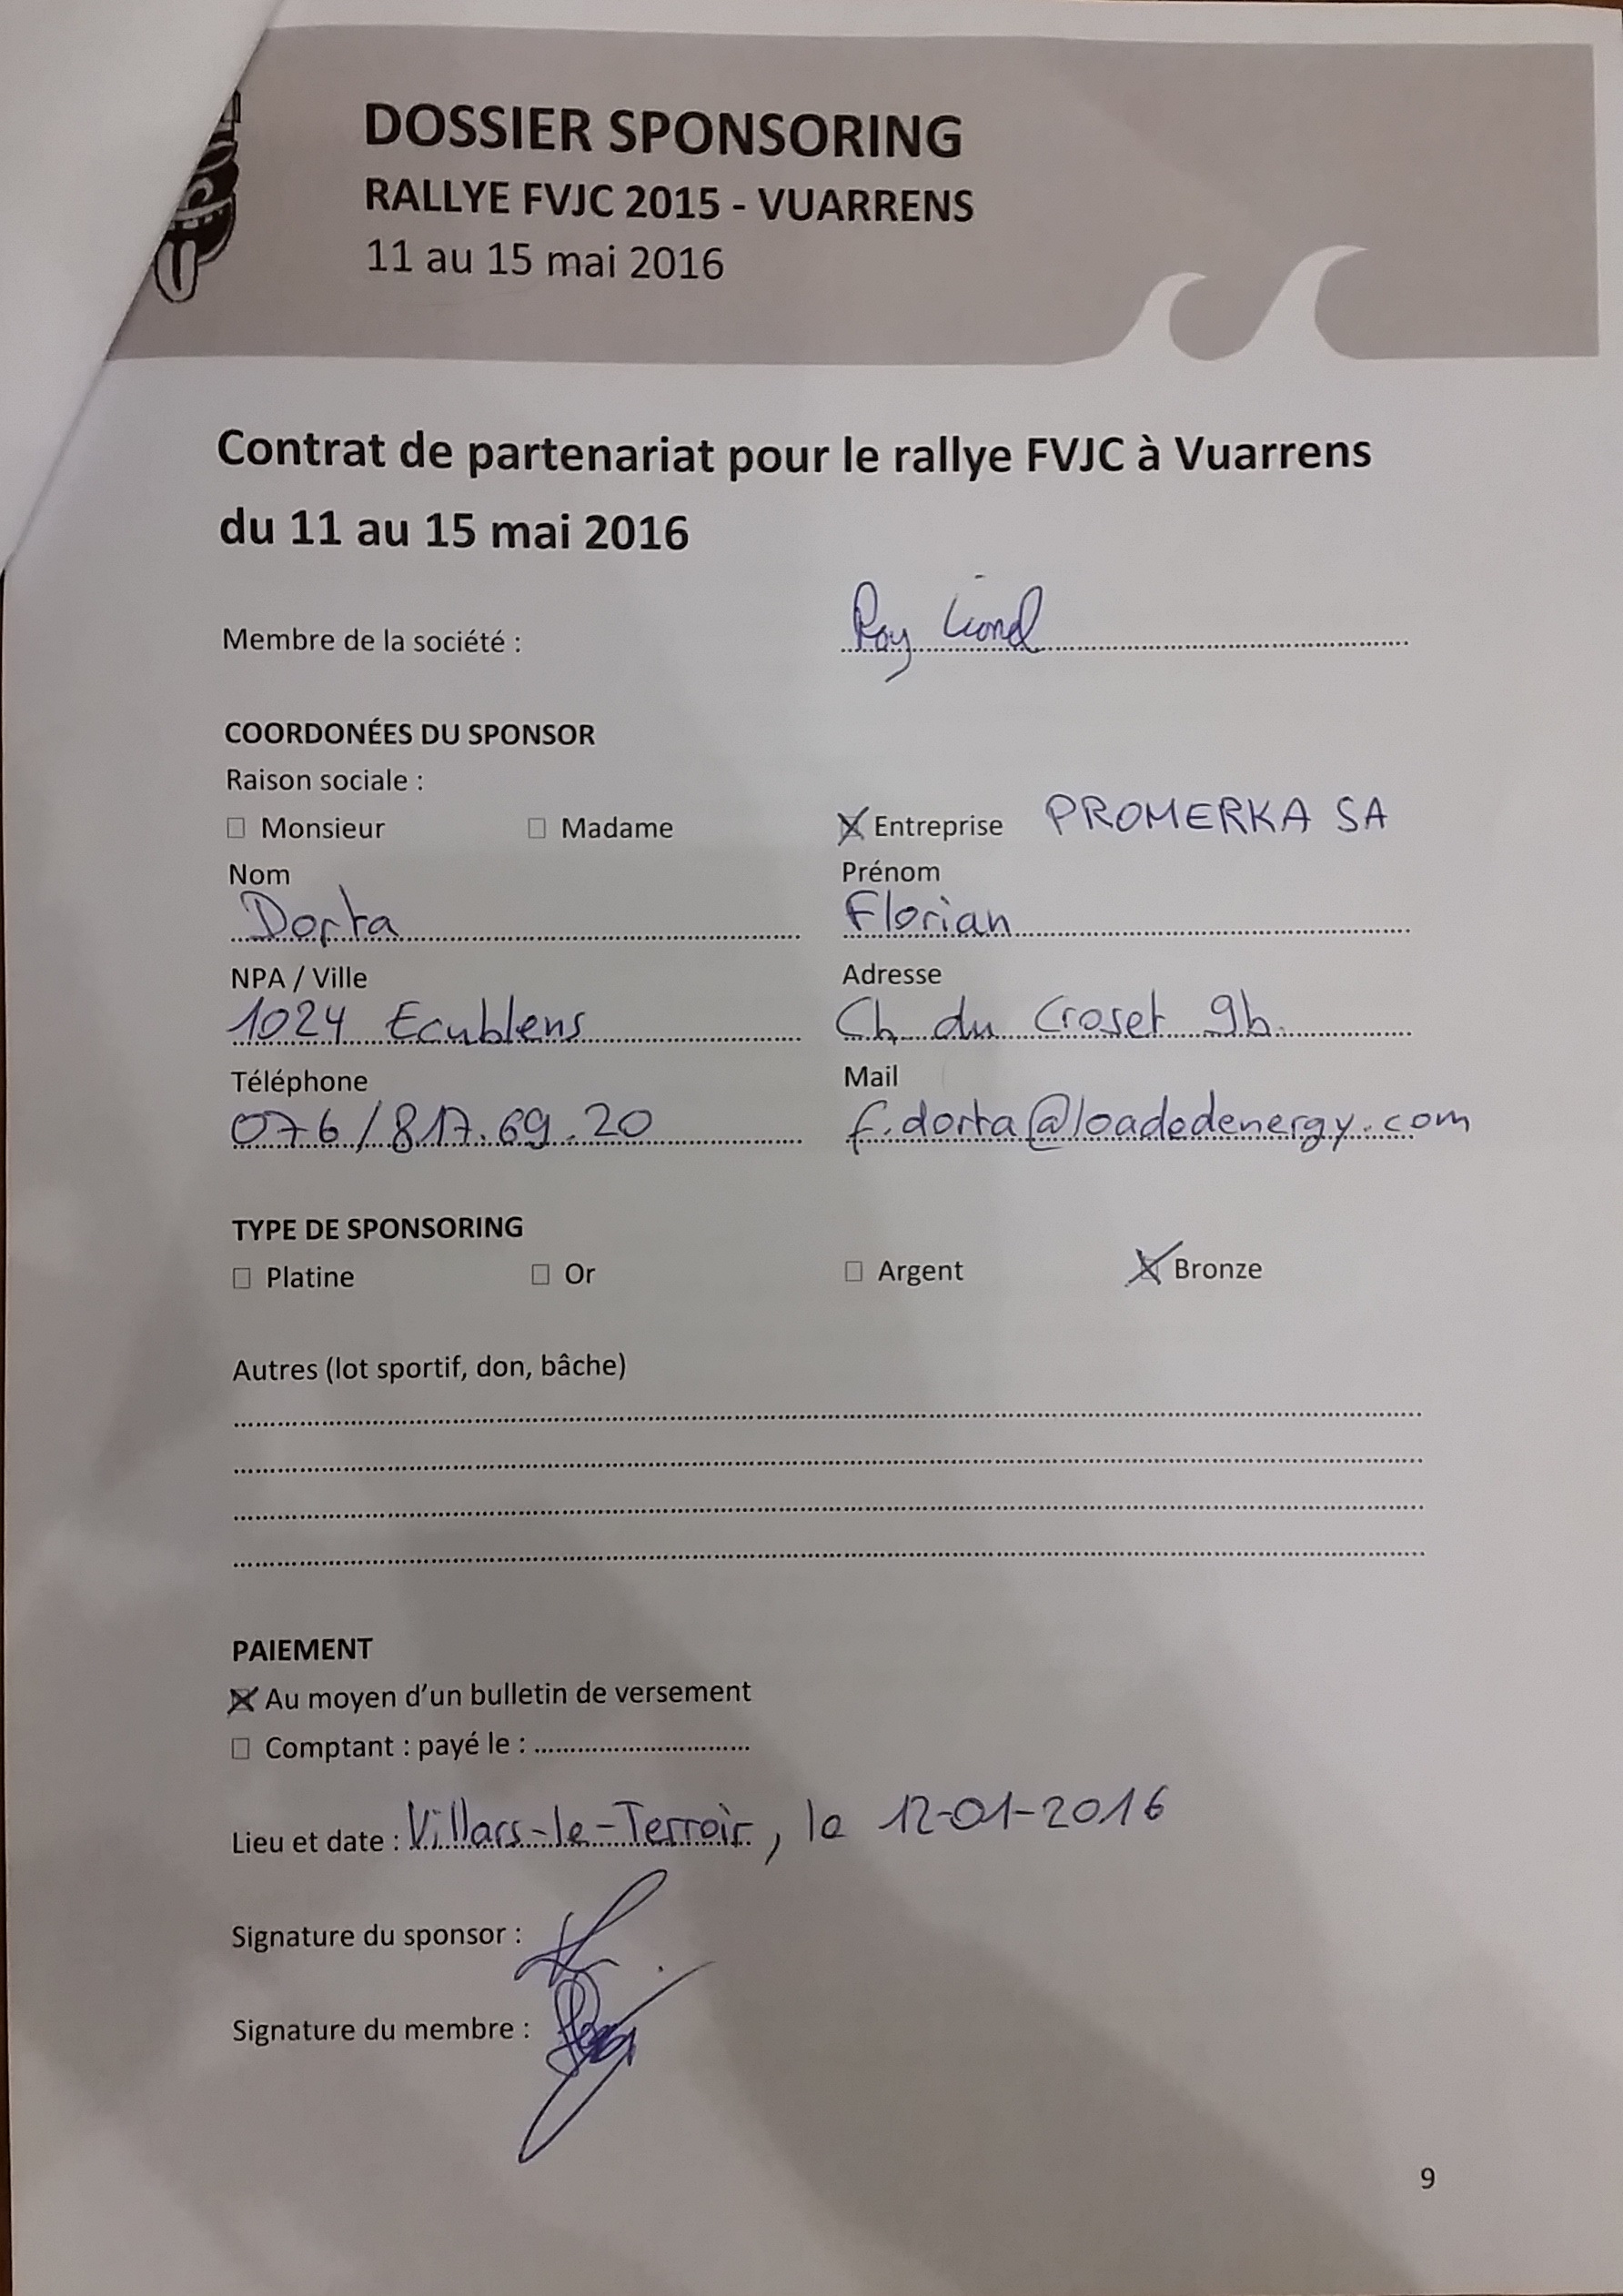 DOSSIER SPONSORING
RALLYE FVJC 2015 - VUARRENS
11 au 15 mai 2016
Contrat de partenariat pour le rallye FVJC à Vuarrens
du 11 au 15 mai 2016
Membre de la société : Roy Lionel
COORDONÉES DU SPONSOR
Raison sociale :
Monsieur Madame Entreprise PROMERKA SA
Nom Prénom
Dorta Florian
NPA / Ville Adresse
1024 Ecublens Ch. du Croset 9b
Téléphone Mail
076/817.69.20 f.dorta@loadedenergy.com
TYPE DE SPONSORING
Platine Or Argent Bronze
Autres (lot sportif, don, bâche)
PAIEMENT
Au moyen d'un bulletin de versement
Comptant : payé le :
Lieu et date : Villars-le-Terroir, le 12-01-2016
Signature du sponsor :
Signature du membre :
9